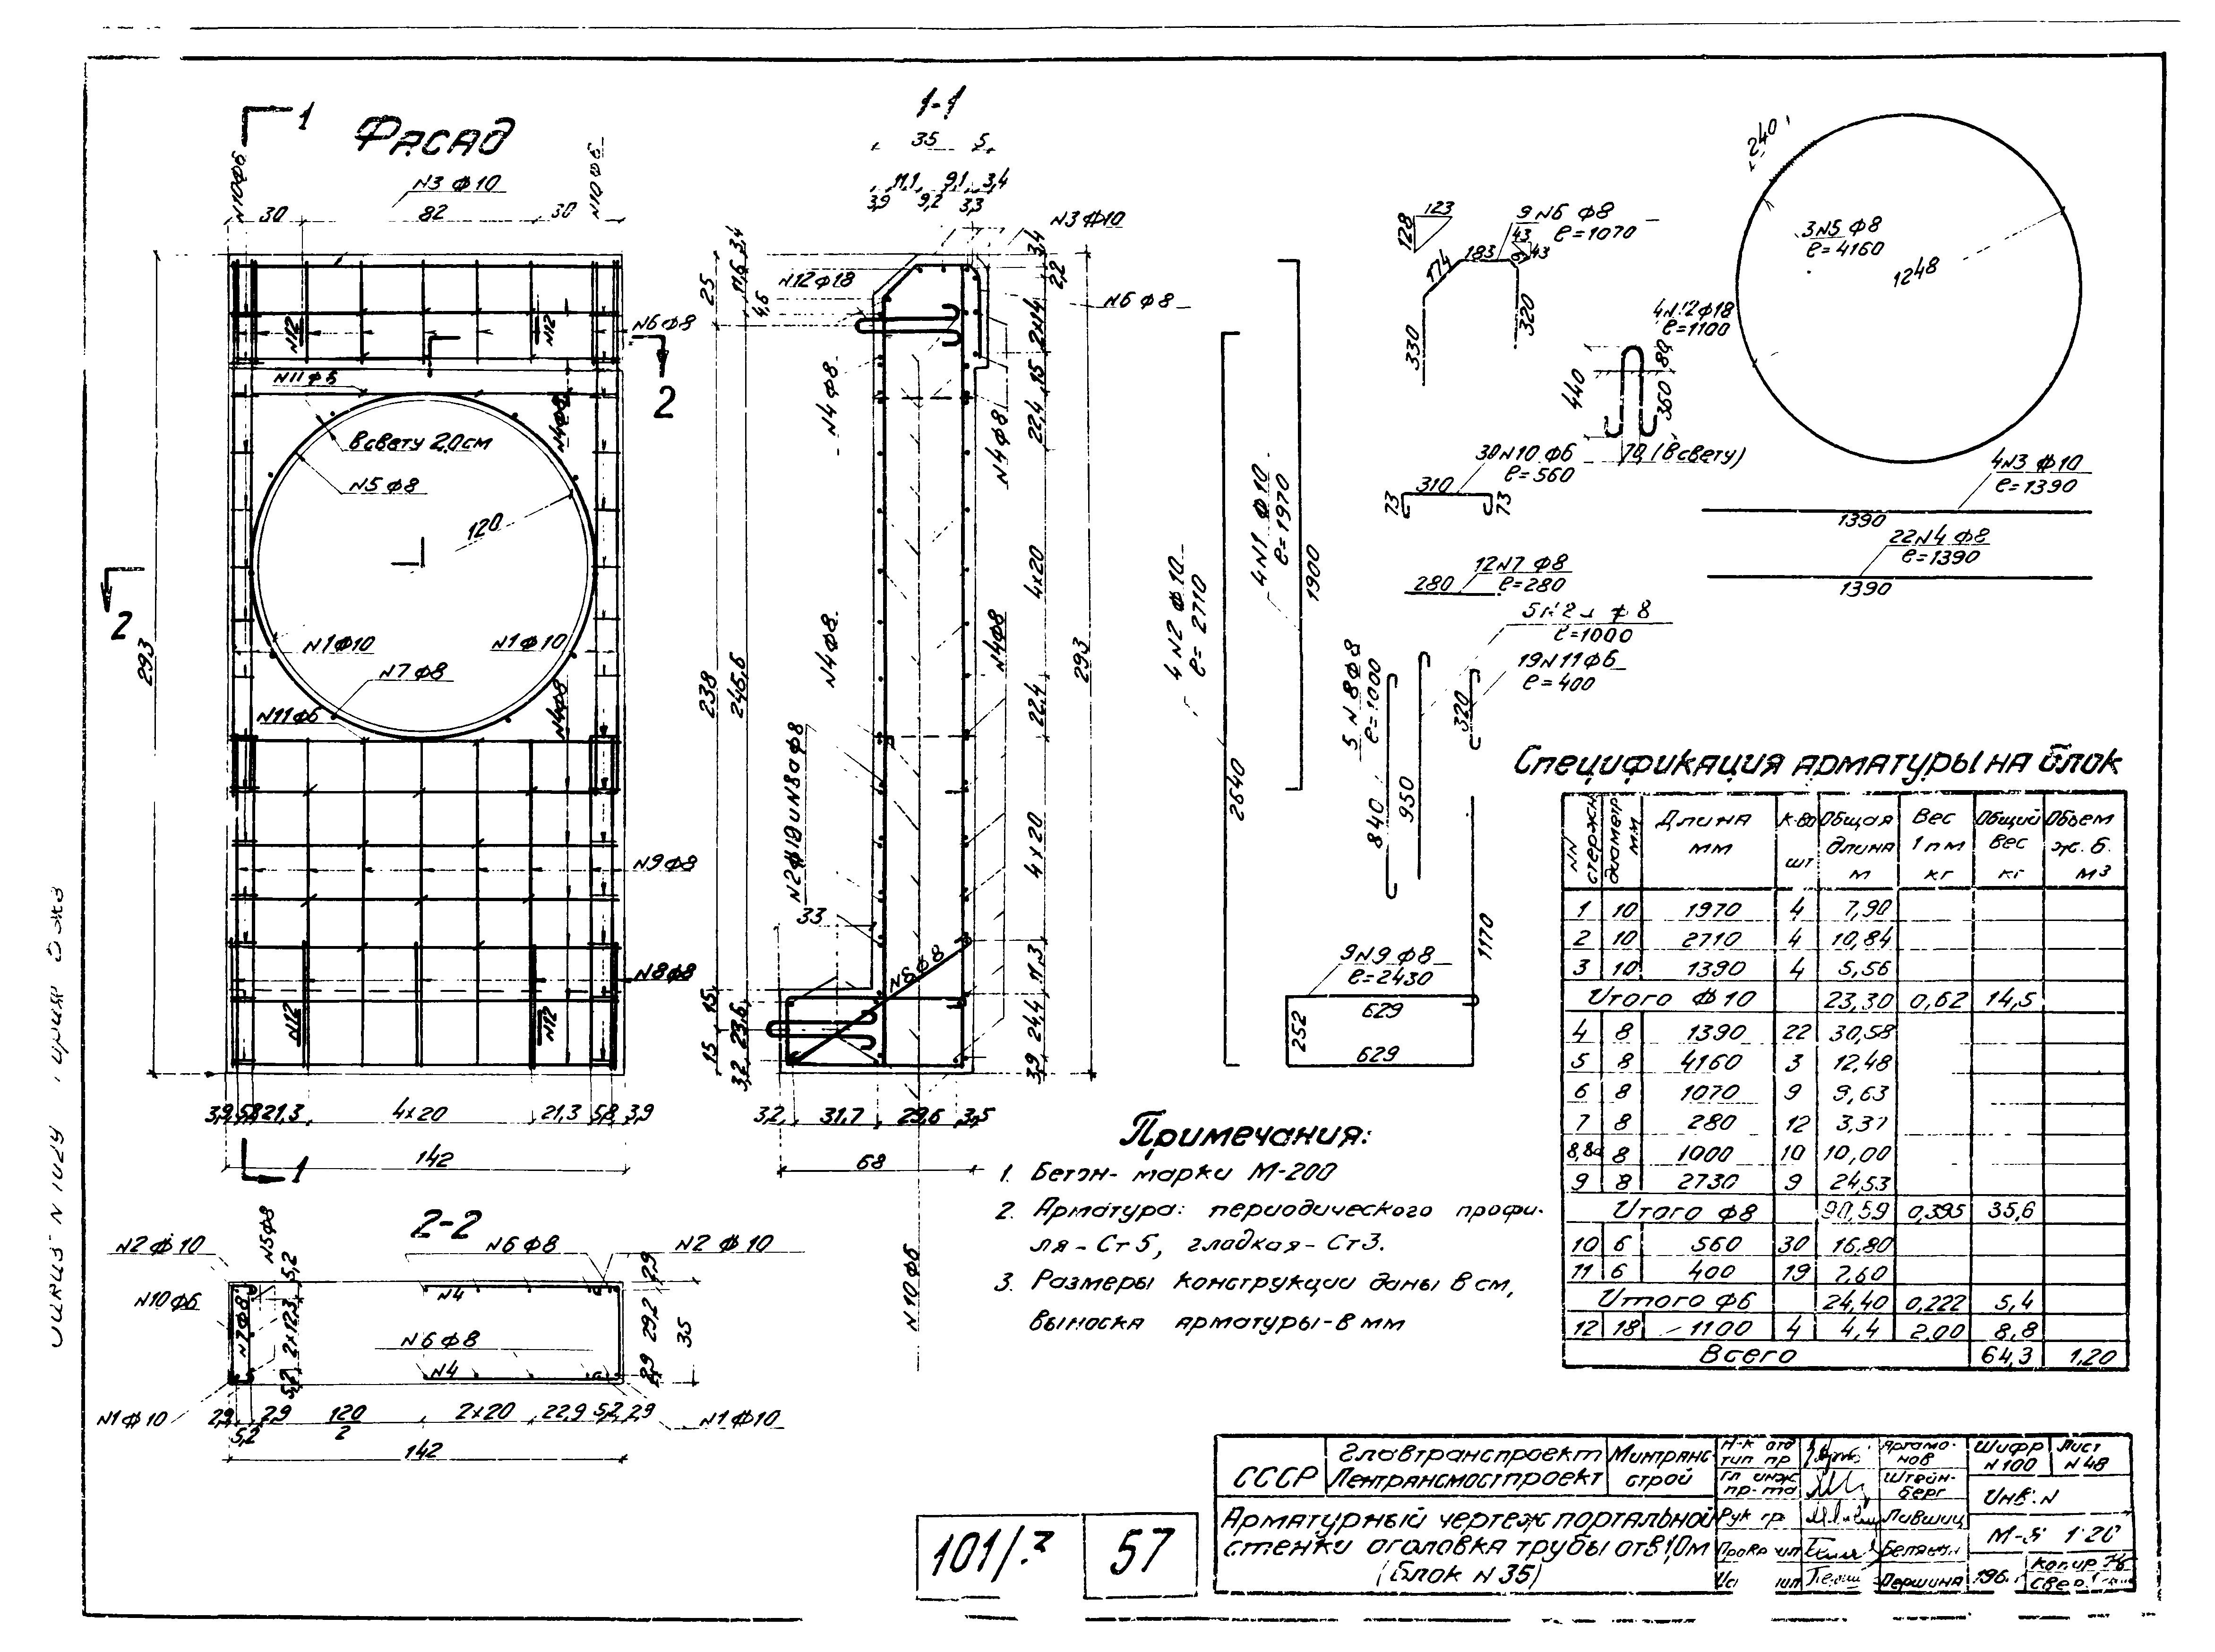 Фасад
1
N10ф6
N3 ф10
N10ф6
30
82
30
N12
N12
N6ф8
2
N11ф6
N4ф8
Всвету 2,0см
N5ф8
120
2
293
N1ф10
N1ф10
N7ф8
N11ф6
N4ф8
N9ф8
N8ф8
N12
N12
3,9
5,8
21,3
4x20
21,3
5,8
3,9
142
1
1-1
35
5
11,1
9,1
3,4
3,9
9,2
3,3
N3ф10
25
11,6
3,4
4,6
N12ф18
3,4
2,2
N6ф8
2x14
15
22,4
N4ф8
N4ф8
4x20
N4ф8
N4ф8
22,4
293
238
246,6
4x20
33
N8ф8
11,3
24,4
3,9
15
23,6
15
3,2
3,2
31,7
29,6
3,5
68
N10ф6
2-2
N2ф10
N5ф8
5,2
N6ф8
N2ф10
2,9
N10ф6
N7ф8
2x12,3
N4
29,2
35
N6ф8
5,2
N4
2,9
N1ф10
2,9
2,9
120
2
2x20
22,9
5,2
2,9
N1ф10
5,2
142
4 N2 ф10
ℓ=2710
2640
4N1 ф10
ℓ=1970
1900
128
123
9 N6 ф8
ℓ=1070
174
183
43
43
330
320
240
3N5 ф8
ℓ=4160
1248
4N12ф18
ℓ=1100
440
80
360
70 (Всвету)
30N10 ф6
ℓ=560
310
73
73
4N3 ф10
ℓ=1390
1390
22N4 ф8
ℓ=1390
1390
12N7 ф8
280
ℓ=280
ℓ=1000
19N11ф6
ℓ=400
5 N 8ф8
ℓ=1000
320
840
950
1170
9N9 ф8
ℓ=2430
629
252
629
Примечания:
1. Бетон- марки М-200
2. Арматура: периодического профи-
ля-Ст5, гладкая-Ст3.
3. Размеры конструкции даны в см,
выноска арматуры-в мм
Спецификация арматуры на блок
NN стержн диаметр мм Длина мм К-во шт Общая длина м Вес 1пм кг Общий вес кг Объем ж.б. м3
1 10 1970 4 7,90
2 10 2710 4 10,84
3 10 1390 4 5,56
Итого ф10 23,30 0,62 14,5
4 8 1390 22 30,58
5 8 4160 3 12,48
6 8 1070 9 9,63
7 8 280 12 3,37
8,8а 8 1000 10 10,00
9 8 2730 9 24,53
Итого ф8 90,59 0,395 35,6
10 6 560 30 16,80
11 6 400 19 7,60
Итого ф6 24,40 0,222 5,4
12 18 1100 4 4,4 2,00 8,8
Всего 64,3 1,20
СССР
Главтранспроект
Лентрансмостпроект
Минтранс-
строй
Арматурный чертеж портальной
стенки оголовка трубы отв 1,0м
(Блок N35)
Н-к отд тип пр Артамо-нов
Гл инж пр-та Штейн-берг
Рук гр Лившиц
Провер
Першина
Шифр N100
Лист N48
Инв.N
М-б 1:20
196
Копир
Свер.
57